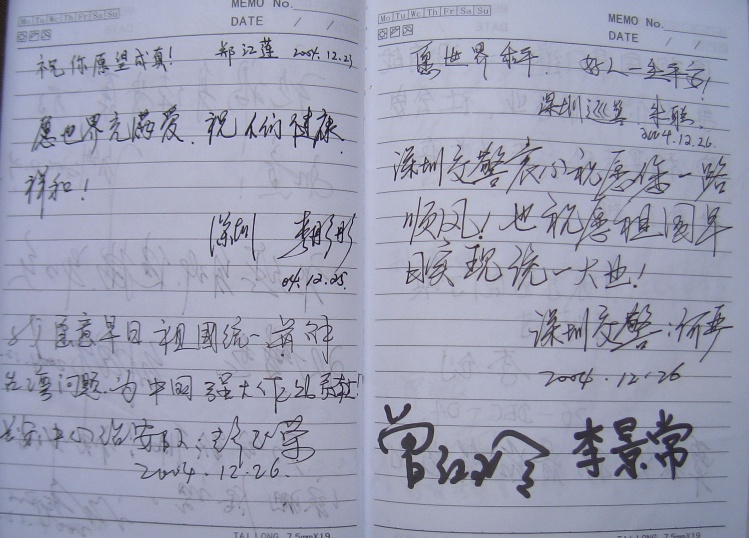 Mo Tu We Th Fr Sa Su
MEMO No.
DATE / /
祝你愿望成真! 郑江莲 2004.12.23
愿世界充满爱.祝人们健康.
祥和!
深圳
04.12.25.
愿意早日祖國統一 解
台湾问题.为中國强大作出贡献!
2004.12.26.
Mo Tu We Th Fr Sa Su
MEMO No.
DATE / /
愿世界和平 好人一生平安!
深圳巡警
2004.12.26.
深圳交警表示祝愿你一路
顺风!也祝愿祖国早
日实现统一大业!
深圳交警:何
2004.12.26
曾 李景常
TAI LONG 7.5mmX19
TAI LONG 7.5mmX19